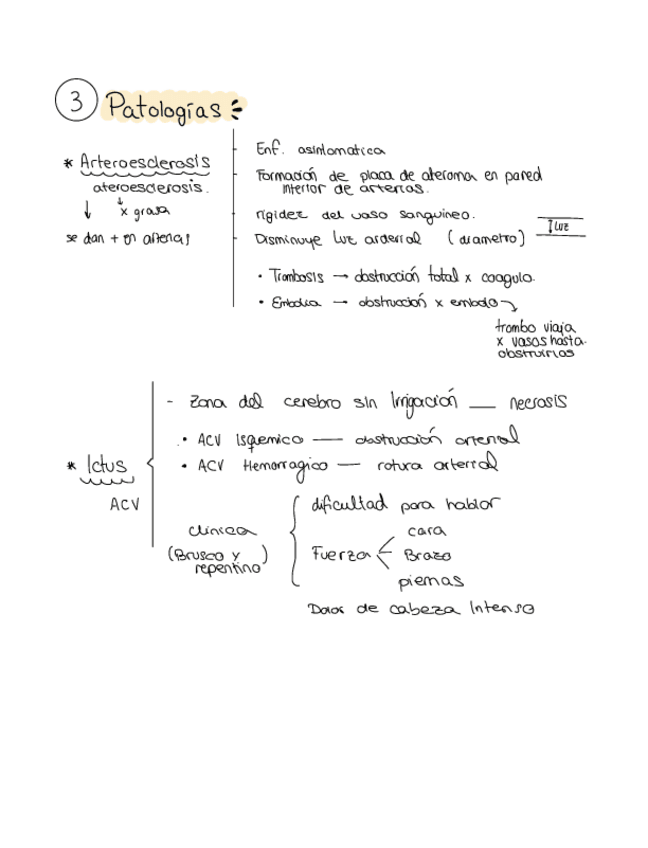 3 Patologías:
* Arteroesclerosis
ateroesclerosis.
↓ ↓ x grasa
se dan + en arterias
- Enf. asintomatica
- Formación de placa de ateroma en pared
interior de arterias.
- rigidez del vaso sanguineo.
- Disminuye luz arterial (diametro) ↑ luz
• Trombosis → obstrucción total x coagulo.
• Embolia → obstrucción x embolo →
trombo viaja
x vasos hasta
obstruirlos
* Ictus
ACV
- Zona del cerebro sin Irrigación — necrosis
• ACV Isquemico — obstrucción arterial
• ACV Hemorragico — rotura arterial
clínica
(Brusco y
repentino)
dificultad para hablar
Fuerza
cara
Brazo
piernas
Dolor de cabeza Intenso